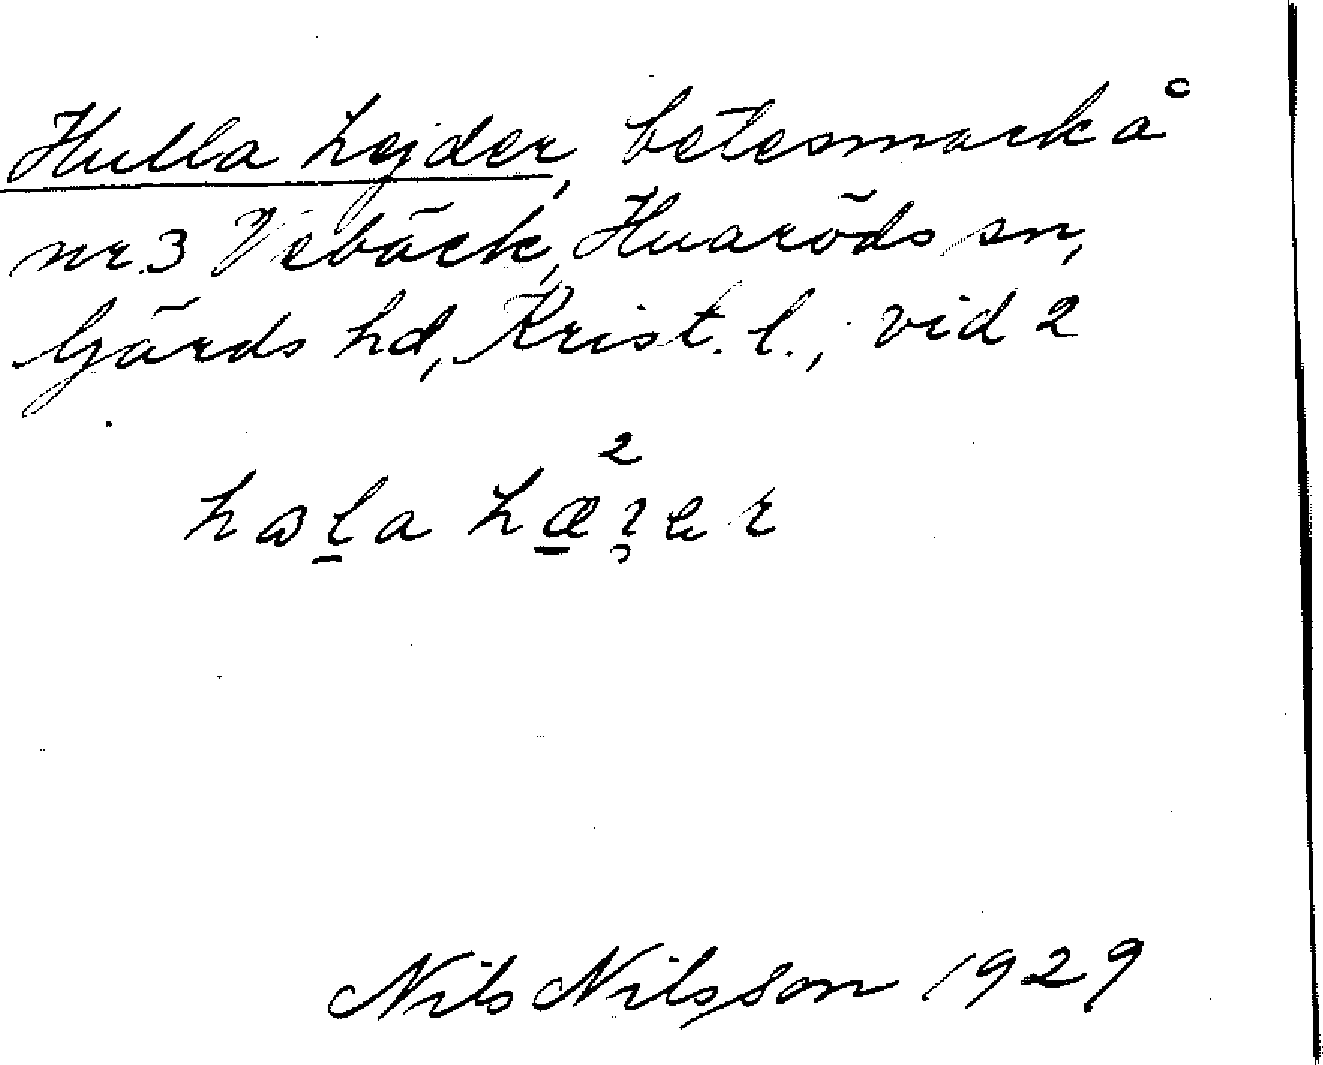 Hulla hejder, betesmark å
nr. 3 Vebäck, Huaröds sn,
Gärds hd, Krist. l., vid 2
Nils Nilsson 1929